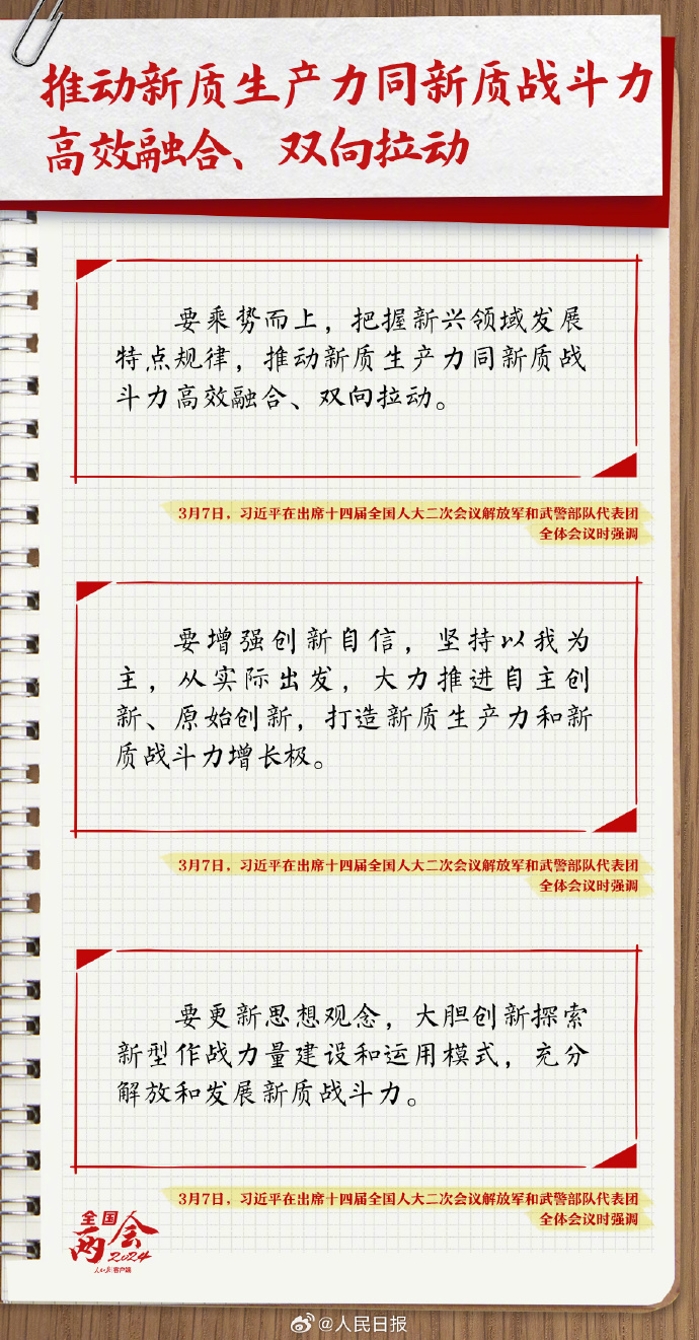 推动新质生产力同新质战斗力
高效融合、双向拉动
要乘势而上，把握新兴领域发展
特点规律，推动新质生产力同新质战
斗力高效融合、双向拉动。
3月7日，习近平在出席十四届全国人大二次会议解放军和武警部队代表团
全体会议时强调
要增强创新自信，坚持以我为
主，从实际出发，大力推进自主创
新、原始创新，打造新质生产力和新
质战斗力增长极。
3月7日，习近平在出席十四届全国人大二次会议解放军和武警部队代表团
全体会议时强调
要更新思想观念，大胆创新探索
新型作战力量建设和运用模式，充分
解放和发展新质战斗力。
3月7日，习近平在出席十四届全国人大二次会议解放军和武警部队代表团
全体会议时强调
全国
两会
2024
人民日报客户端
@人民日报